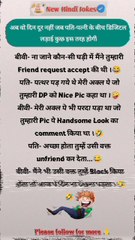 New Hindi Jokes
अब वो दिन दूर नहीं जब पति-पत्नी के बीच डिजिटल
लड़ाई कुछ इस तरह होगी
बीवी- ना जाने कौन-सी घड़ी में मैंने तुम्हारी
Friend request accept की थी ।
पति- पत्थर पड़ गये थे मेरी अक्ल पे जो
तुम्हारी DP को Nice Pic कहा था ।
बीवी- मेरी अक्ल पे भी परदा पड़ा था जो
तुम्हारी Pic पे Handsome Look का
comment किया था ।
पति- अच्छा होता तुम्हें उसी वक्त
unfriend कर देता...
बीवी- मैंने भी उसी वक्त तुम्हें Block किया
Please follow for more